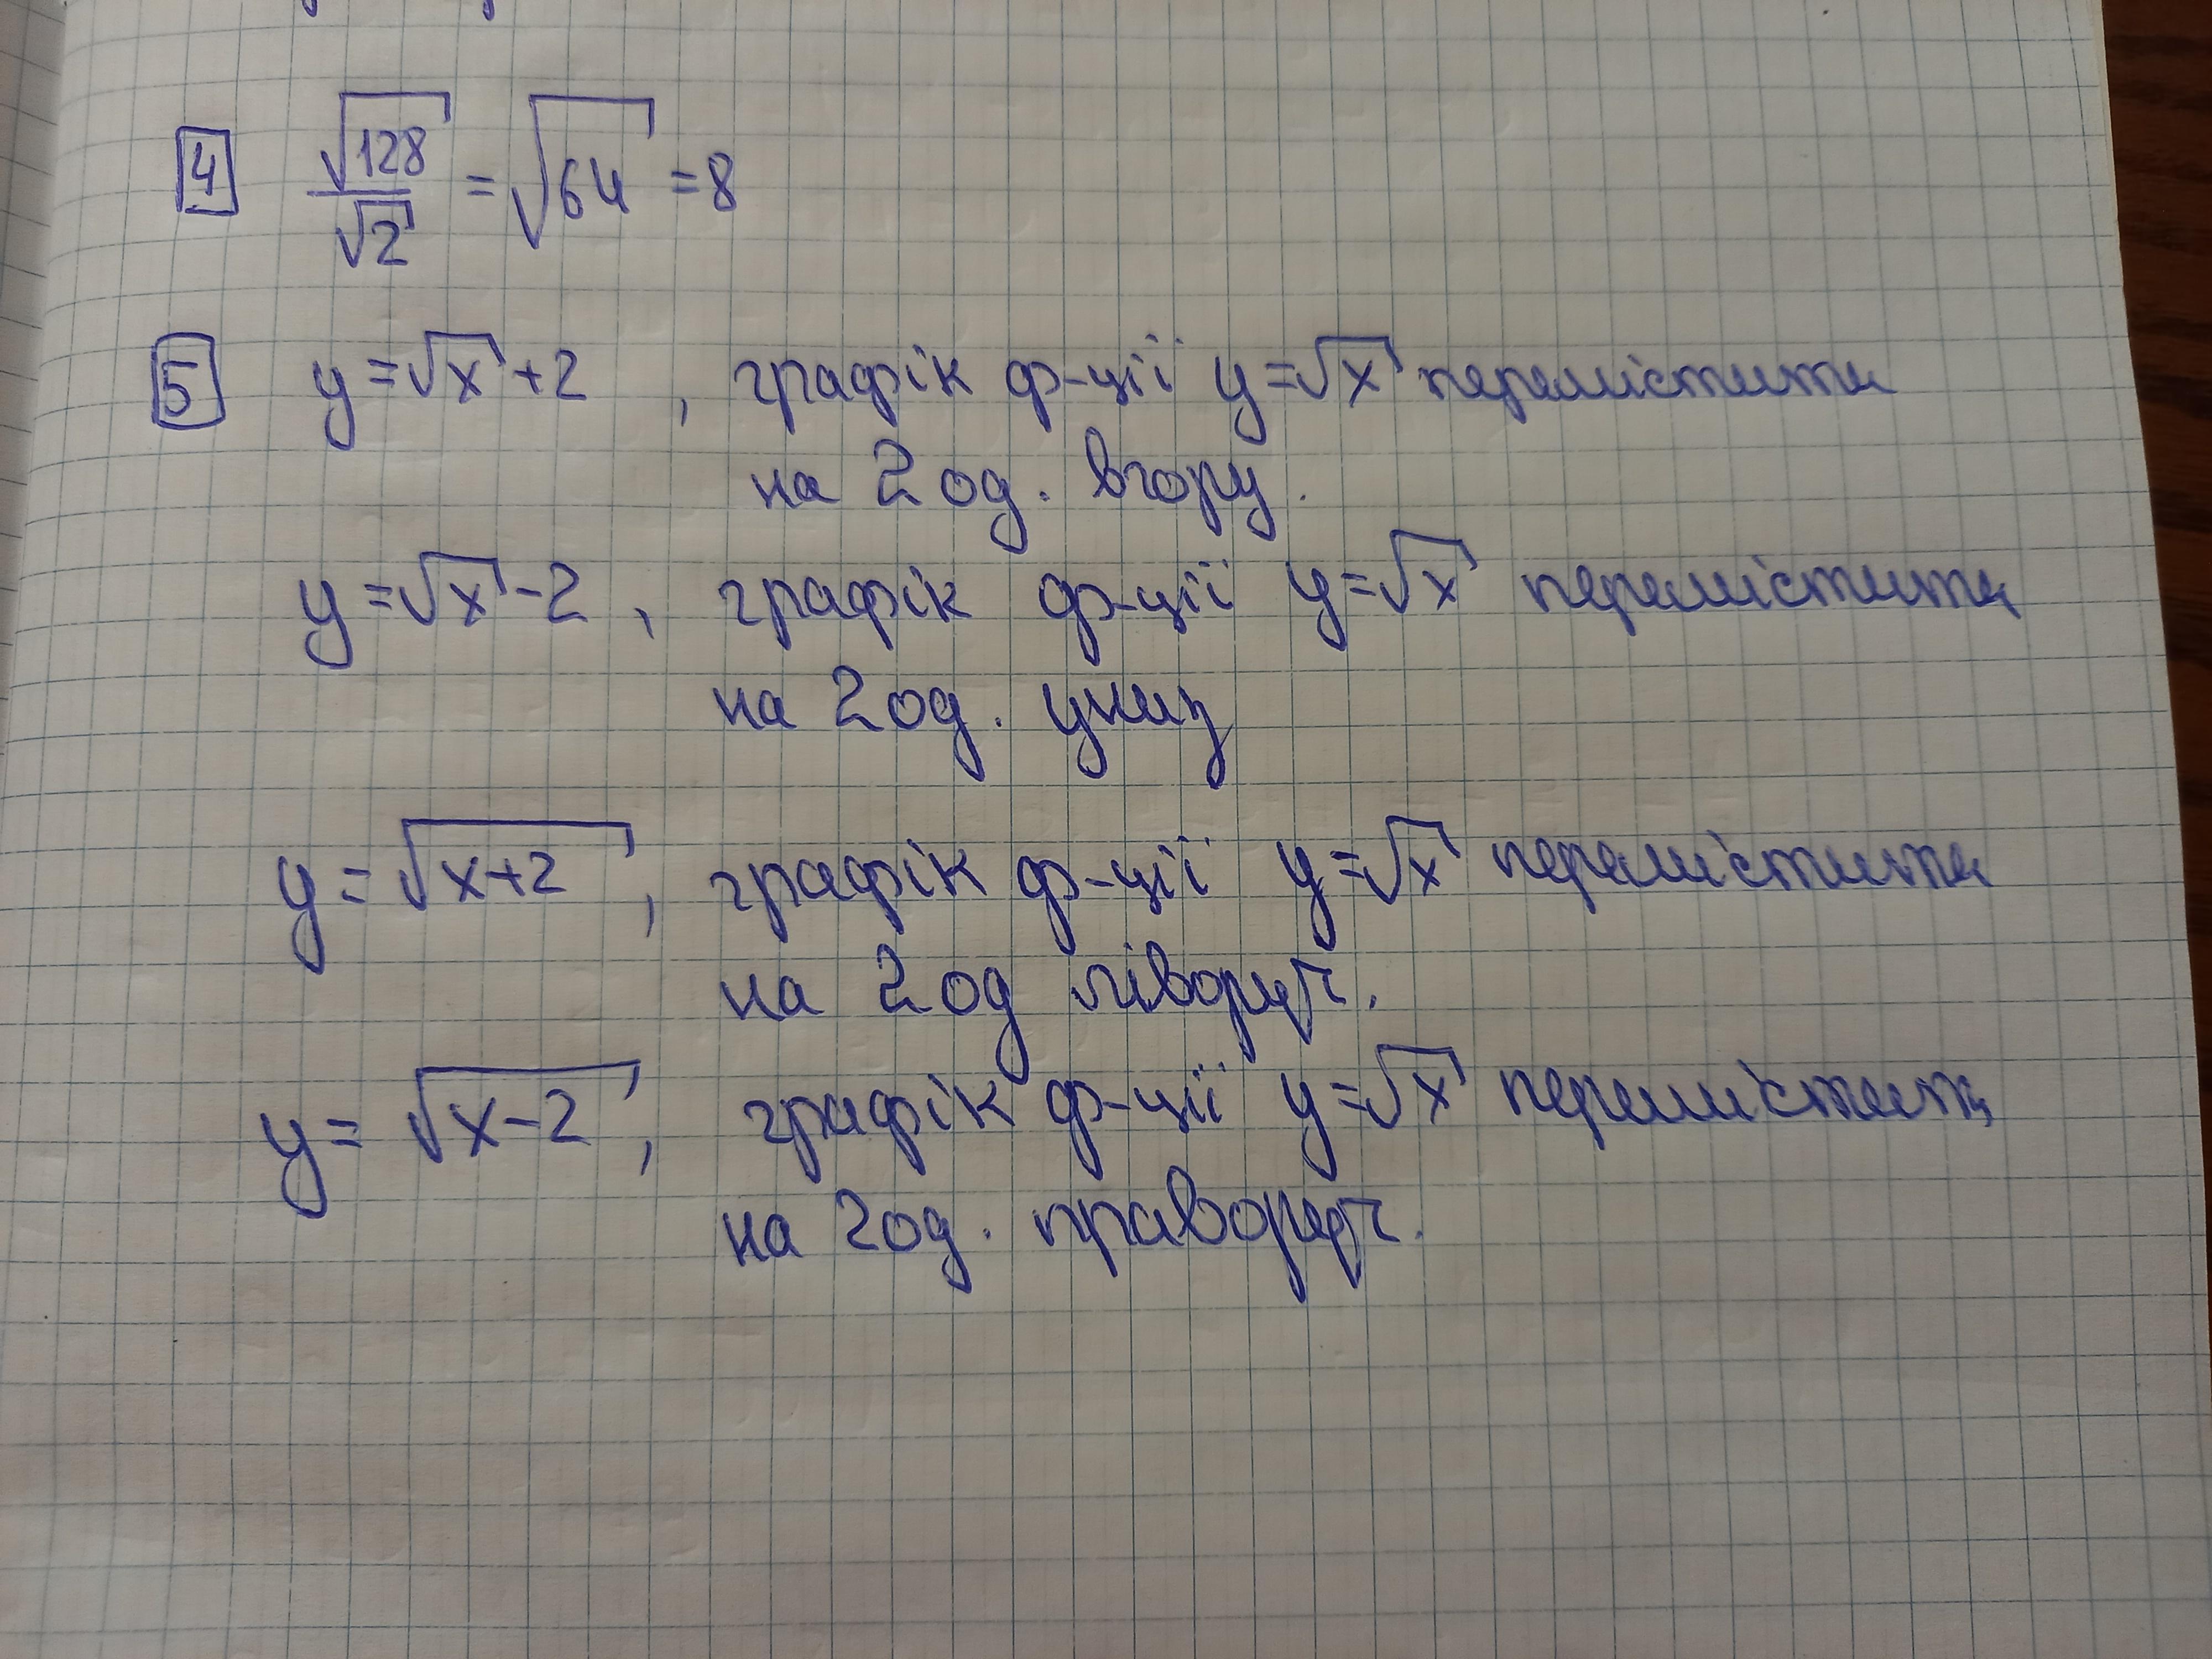 4 √128/√2 = √64 = 8
5 y = √x + 2 , графік ф-ції y = √x перемістити
на 2 од. вгору.
y = √x - 2 , графік ф-ції y = √x перемістити
на 2 од. униз
y = √(x+2) , графік ф-ції y = √x перемістити
на 2 од ліворуч.
y = √(x-2) , графік ф-ції y = √x перемістити
на 2 од. праворуч.